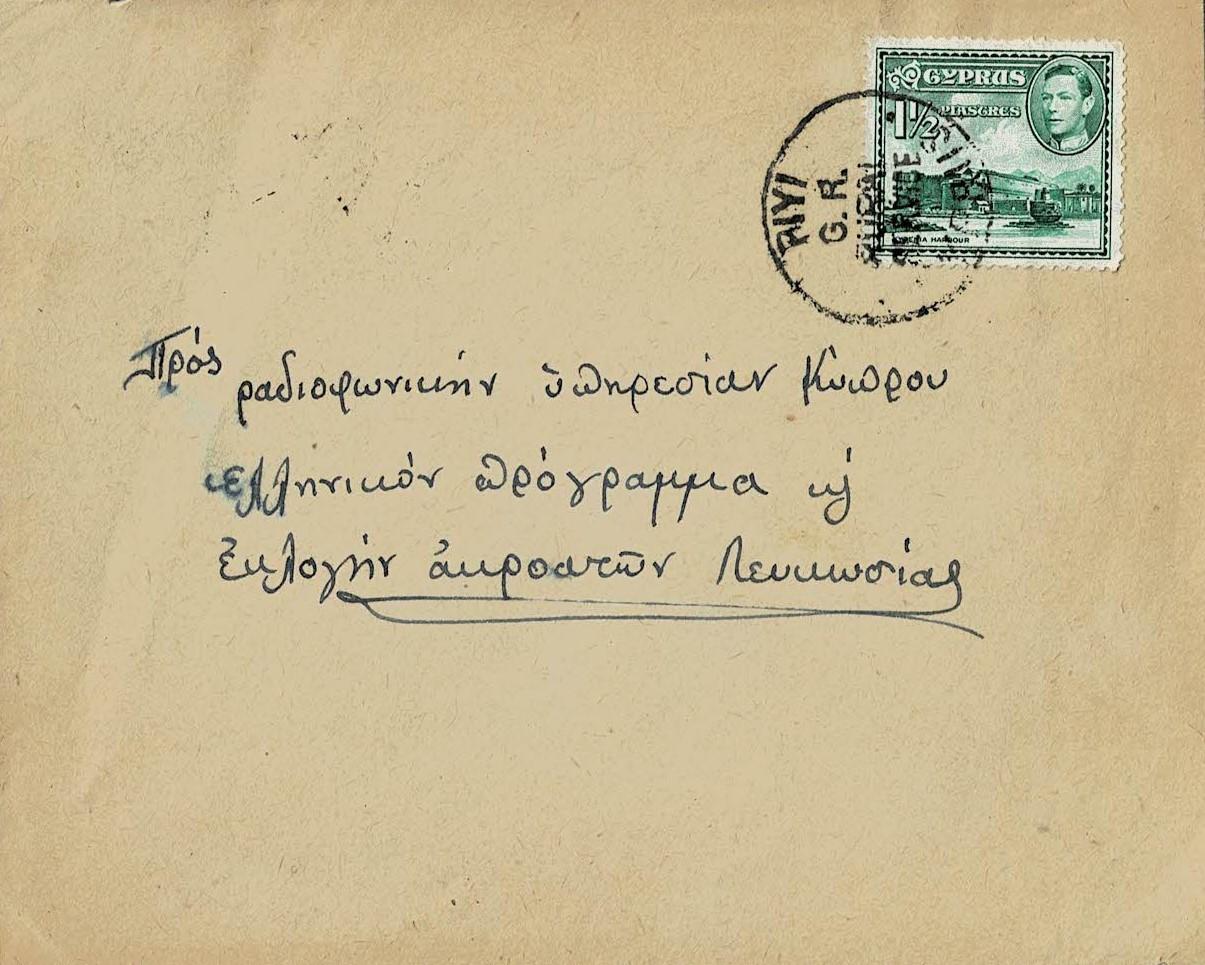 CYPRUS
1½ PIASTRES
KYRENIA HARBOUR
G.R.
Πρός
ραδιοφωνικήν ὑπηρεσίαν Κύπρου
ἑλληνικόν πρόγραμμα κὶ
Ἐκλογήν ἀκροατῶν Λευκωσίας